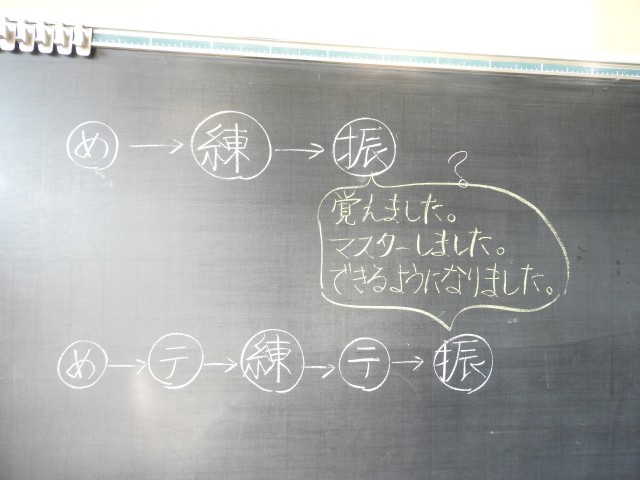 め → 練 → 振
?
覚えました。
マスターしました。
できるようになりました。
め → テ → 練 → テ → 振